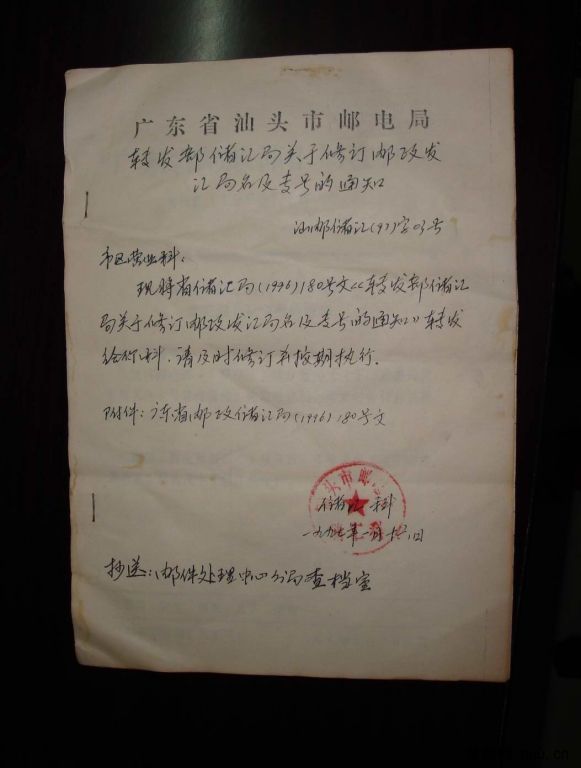 广东省汕头市邮电局
转发部储汇局关于修订邮政发
汇局名及专号的通知
汕邮储汇(97)字03号
市区营业科:
现将省储汇局(1996)180号文《转发部储汇
局关于修订邮政发汇局名及专号的通知》转发
给你科,请及时修订并按期执行.
附件:广东省邮政储汇局(1996)180号文
头市邮
储汇科
一九九七年一月十六日
抄送:邮件处理中心分局查档室